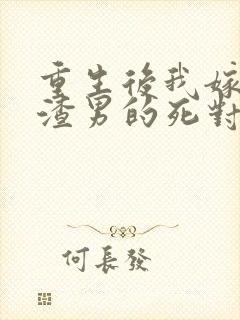 重生後我嫁
渣男的死對
何長發